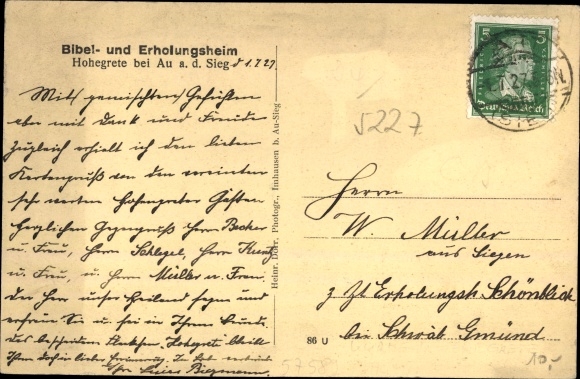 Bibel- und Erholungsheim
Hohegrete bei Au a. d. Sieg d 1.7.27
Mit gemischten Gefühlen
aber mit Dank und Freude
zugleich erhielt ich den lieben
Kartengruß von den vereinten
sehr werten Hohengreter Gästen
Herzlichen Gegengruß Herrn Becker
u. Frau, Herrn Schlegel, Herrn Kunz
u. Frau, u. Herrn Müller u. Frau.
Der Herr unser Heiland segne und
erfreue Sie u. sei in Ihrem Bunde
Hohegrete bleibt
Ihnen doch in lieber Erinnerung
Ihr
Heinr. Dörr, Photogr., Imhausen b. Au-Sieg
Deutsches Reich
5227
Herrn
W. Müller
aus Siegen
z. Zt Erholungsh Schönblick
bei Schwäb Gmünd
86 U
5758
10,-